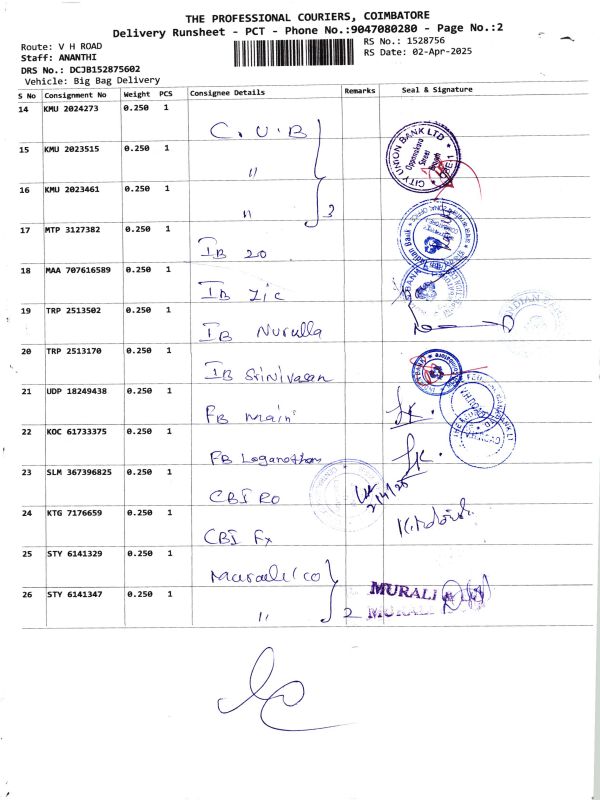 THE PROFESSIONAL COURIERS, COIMBATORE
Delivery Runsheet - PCT - Phone No.:9047080280 - Page No.:2
Route: V H ROAD
RS No.: 1528756
Staff: ANANTHI
RS Date: 02-Apr-2025
DRS No.: DCJB152875602
Vehicle: Big Bag Delivery
S No Consignment No Weight PCS Consignee Details Remarks Seal & Signature
14 KMU 2024273 0.250 1 C.U.B
15 KMU 2023515 0.250 1 "
CITY UNION BANK LTD
Oppanakara Street
16 KMU 2023461 0.250 1 " 3
17 MTP 3127382 0.250 1 IB ZO
Indian Bank
18 MAA 707616589 0.250 1 IB Zic
19 TRP 2513502 0.250 1 IB Nurulla
20 TRP 2513170 0.250 1 IB Srinivasan
21 UDP 18249438 0.250 1 FB main
22 KOC 61733375 0.250 1 FB Loganathan
23 SLM 367396825 0.250 1 CBI RO
2/4/25
24 KTG 7176659 0.250 1 CBI Fx
25 STY 6141329 0.250 1 Murali/co
MURALI
26 STY 6141347 0.250 1 " 2
MURALI